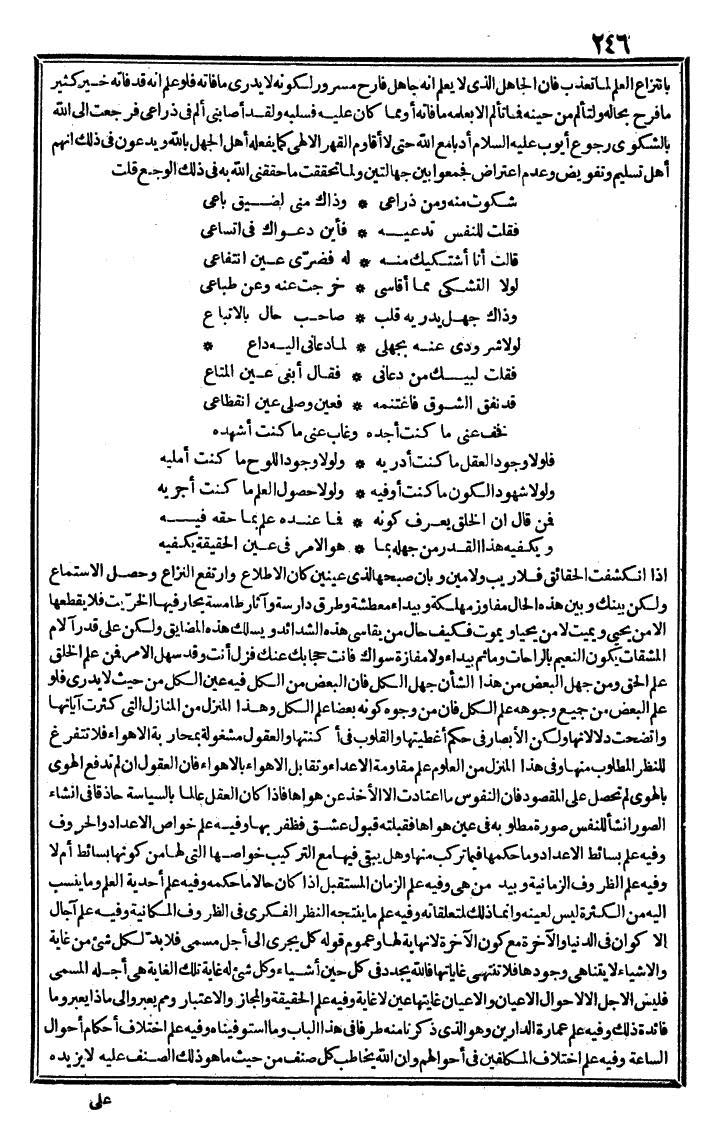 ٢٤٦
بانتزاع العلم لما تعذب فان الجاهل الذى لا يعلم انه جاهل فارح مسرور لكونه لا يدرى ما فاته فلو علم انه قد فاته خير كثير
ما فرح بحاله ولتألم من حينه فما تألم الا بعلمه ما فاته أو مما كان عليه فسلبه ولقد أصابنى ألم فى ذراعى فرجعت الى الله
بالشكوى رجوع أيوب عليه السلام أدبا مع الله حتى لا أقاوم القهر الالهى كما يفعله أهل الجهل بالله ويدعون فى ذلك انهم
أهل تسليم وتفويض وعدم اعتراض فجمعوا بين جهالتين ولما تحققت ما حققنى الله به فى ذلك الوجع قلت
شكوت منه ومن ذراعى * وذاك منى لضيق باعى
فقلت للنفس تدعيه * فأين دعواك فى اتساعى
قالت أنا أشتكيك منه * له فضرى عين انتفاعى
لولا التشكى مما أقاسى * خرجت عنه وعن طباعى
وذاك جهل يدريه قلب * صاحب حال بالاتباع
لولا شرودى عنه بجهلى * لما دعانى اليه داع *
فقلت لبيك من دعانى * فقال أبنى عين المتاع
قد نفق الشوق فاغتنمه * فعين وصلى عين انقطاعى
نخف عنى ما كنت أجده وغاب عنى ما كنت أشهده
فلولا وجود العقل ما كنت أدريه * ولولا وجود اللوح ما كنت أمليه
ولولا شهود الكون ما كنت أوفيه * ولولا حصول العلم ما كنت أجريه
فمن قال ان الخلق يعرف كونه * فما عنده علم بما حقه فيه
ويكفيه هذا القدر من جهله بما * هو الامر فى عين الحقيقة يكفيه
اذا انكشفت الحقائق فلا ريب ولا مين وبان صبحها لذى عينين كان الاطلاع وارتفع النزاع وحصل الاستماع
ولكن بينك وبين هذه الحال مفاوز مهلكة وبيداء معطشة وطرق دارسة وآثار طامسة يحار فيها الخريت فلا يقطعها
الا من يحيى ويميت لا من يحيا ويموت فكيف حال من يقاسى هذه الشدائد ويسلك هذه المضايق ولكن على قدر آلام
المشقات يكون النعيم بالراحات وما ثم بيداء ولا مفازة سواك فانت حجابك عنك فزل أنت وقد سهل الامر فمن علم الخلق
علم الحق ومن جهل البعض من هذا الشأن جهل الكل فان البعض من الكل فيه عين الكل من حيث لا يدرى فلو
علم البعض من جميع وجوهه علم الكل فان من وجوه كونه بعضا علم الكل وهذا المنزل من المنازل التى كثرت آياتها
واتضحت دلالاتها ولكن الأبصار فى حكم أغطيتها والقلوب فى أكنتها والعقول مشغولة بمحاربة الاهواء فلا تتفرغ
للنظر المطلوب منها وفى هذا المنزل من العلوم علم مقاومة الاعداء وتقابل الاهواء بالاهواء فان العقول ان لم تدفع الهوى
بالهوى لم تحصل على المقصود فان النفوس ما اعتادت الا الأخذ عن هواها فاذا كان العقل عالما بالسياسة حاذقا فى انشاء
الصور أنشأ للنفس صورة مطلوبه فى عين هواها فقبلته قبول عشق فظفر بها وفيه علم خواص الاعداد والحروف
وفيه علم بسائط الاعداد وما حكمها فيما تركب منها وهل يبقى فيها مع التركيب خواصها التى لها من كونها بسائط أم لا
وفيه علم الظروف الزمانية وبيد من هى وفيه علم الزمان المستقبل اذا كان حالا ما حكمه وفيه علم أحدية العلم وما ينسب
اليه من الكثرة ليس لعينه وانما ذلك لمتعلقاته وفيه علم ما ينتجه النظر الفكرى فى الظروف المكانية وفيه علم آجال
الاكوان فى الدنيا والآخرة مع كون الآخرة لا نهاية لها وعموم قوله كل يجرى الى أجل مسمى فلا بد لكل شئ من غاية
والاشياء لا يتناهى وجودها فلا تنتهى غاياتها فالله يجدد فى كل حين أشياء وكل شئ له غاية تلك الغاية هى أجله المسمى
فليس الاجل الا لاحوال الاعيان والاعيان غايتها عين لا غاية وفيه علم الحقيقة والمجاز والاعتبار ومم يعبر والى ماذا يعبر وما
فائدة ذلك وفيه علم عمارة الدارين وهو الذى ذكرنا منه طرفا فى هذا الباب وما استوفيناه وفيه علم اختلاف أحكام أحوال
الساعة وفيه علم اختلاف المكلفين فى أحوالهم وان الله يخاطب كل صنف من حيث ما هو ذلك الصنف عليه لا يزيده
على